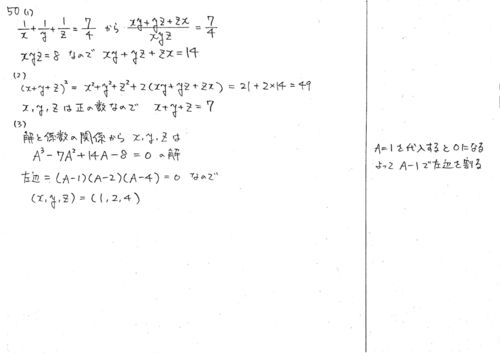 50 (1)
1/x + 1/y + 1/z = 7/4 から (xy+yz+zx)/xyz = 7/4
xyz=8 なので xy+yz+zx=14
(2)
(x+y+z)² = x²+y²+z²+2(xy+yz+zx) = 21+2×14=49
x, y, z は正の数なので x+y+z=7
(3)
解と係数の関係から x, y, z は
A³-7A²+14A-8=0 の解
左辺=(A-1)(A-2)(A-4)=0 なので
(x, y, z)=(1, 2, 4)
A=1を代入すると0になる
よって A-1で左辺を割る